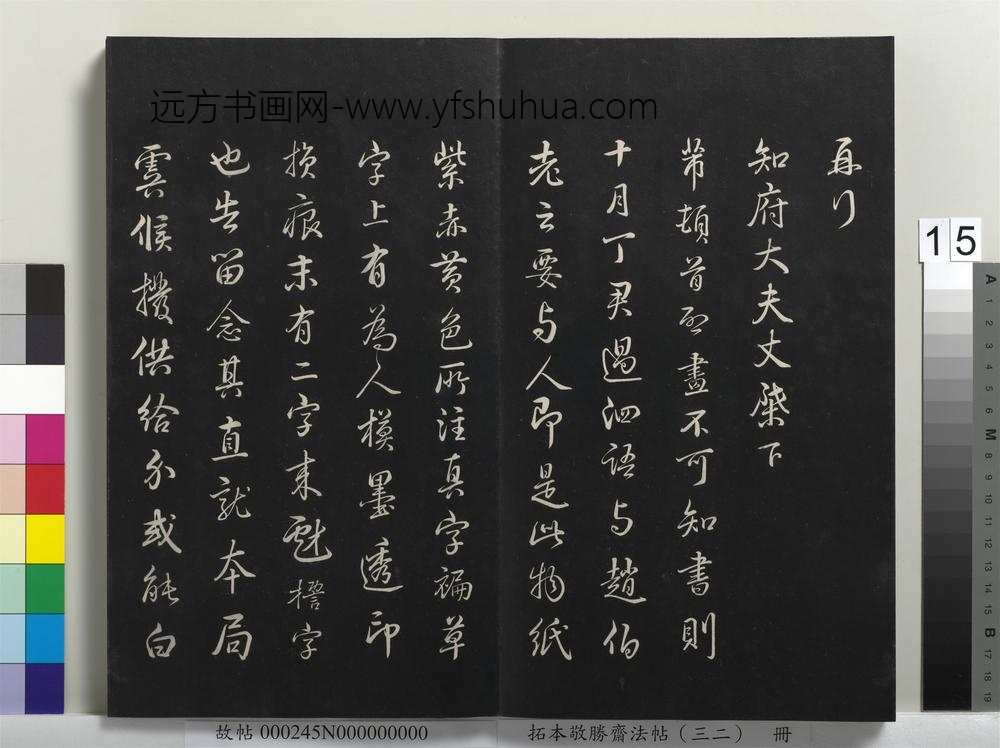 远方书画网-www.yfshuhua.com
再行
知府大夫丈棐下
芾頓首啓畫不可知書則
十月丁君過泗語与趙伯
老云要与人即是此物紙
紫赤黄色所注真字褊草
字上有為人模墨透印
損痕末有二字来戲 字
也告留念其直就本局
虞候撥供給分或能白
15
A 1 2 3 4 5 M 8 9 10 11 12 13 14 15 B 17 18 19
故帖 000245N000000000
拓本敬勝齋法帖（三二） 冊